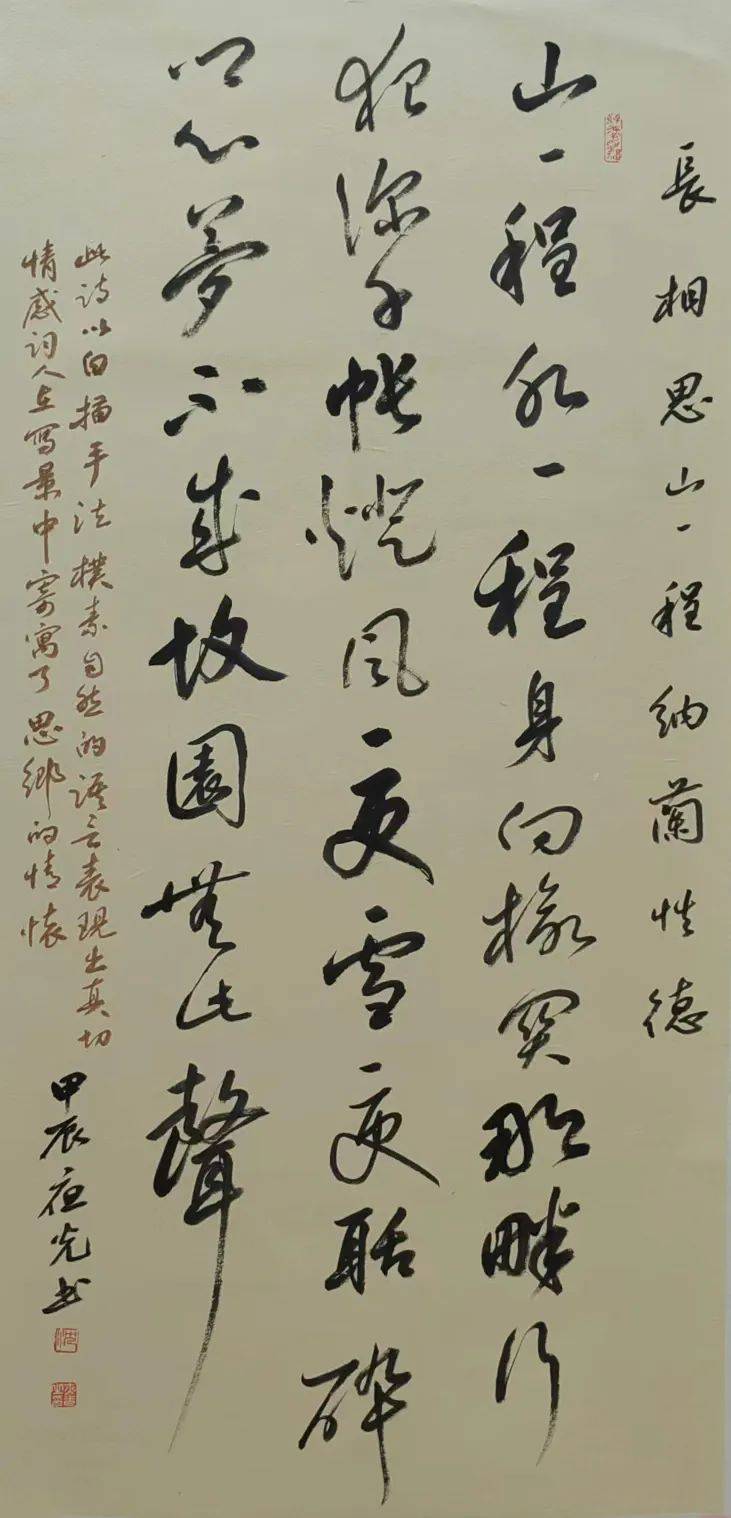 長相思山一程纳蘭性德
山一程水一程身向榆関那畔行
夜深千帐燈风一更雪一更聒碎
鄉心夢不成故園無此聲
此诗以白描手法樸素自然的语言表現出真切
情感词人在写景中寄寓了思鄉的情懷
甲辰 先书